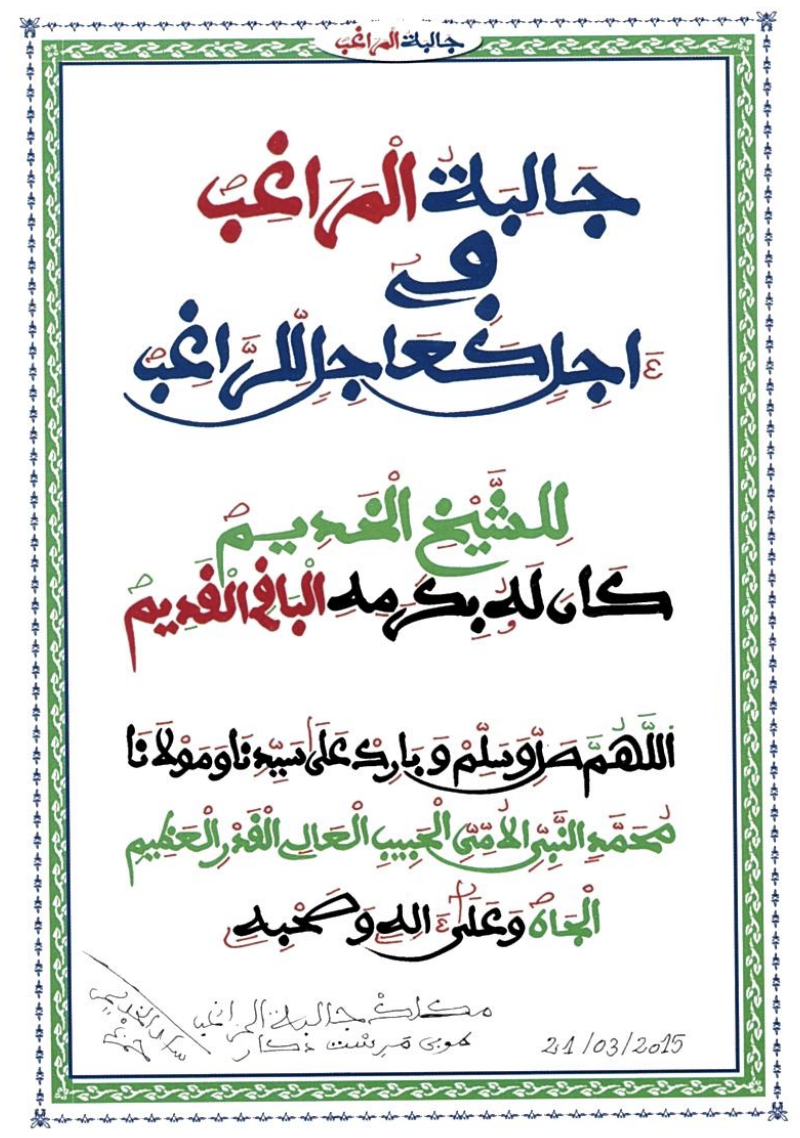 جالبة المراغب
جَالِبَةُ الْمَرَاغِبْ
فِي
ءَاجِلٍ كَعَاجِلٍ لِلرَّاغِبْ
لِلشَّيْخِ الْخَدِيمْ
كَانَ لَهُ بِكَرَمِهِ الْبَاقِي الْقَدِيمْ
اللَّهُمَّ صَلِّ وَسَلِّمْ وَبَارِكْ عَلَى سَيِّدِنَا وَمَوْلَانَا
مُحَمَّدٍ النَّبِيِّ الْأُمِّيِّ الْحَبِيبِ الْعَالِي الْقَدْرِ الْعَظِيمِ
الْجَاهْ وَعَلَى ءَالِهِ وَصَحْبِهِ
جالبة المراغب
دكار 21/03/2015